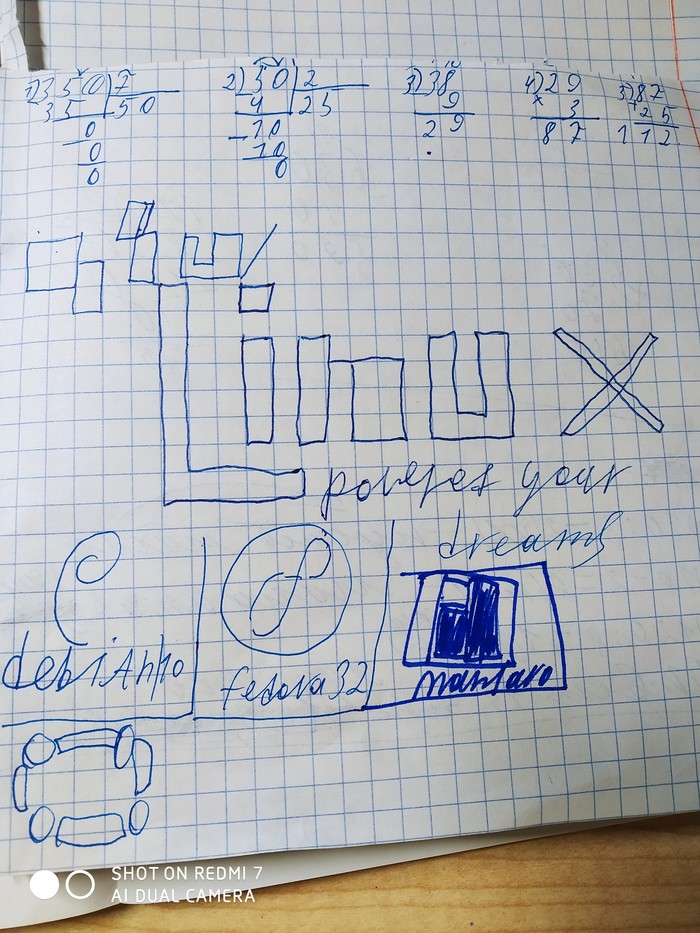 1) 350 | 7
35 | 50
0
0
0
2) 50 | 2
4 | 25
10
10
0
3) 38
9
29
4) 29
× 3
87
5) 87
+ 25
112
GNU/
Linux
powers your
dreams
debian 10
fedora 32
manjaro
SHOT ON REDMI 7
AI DUAL CAMERA